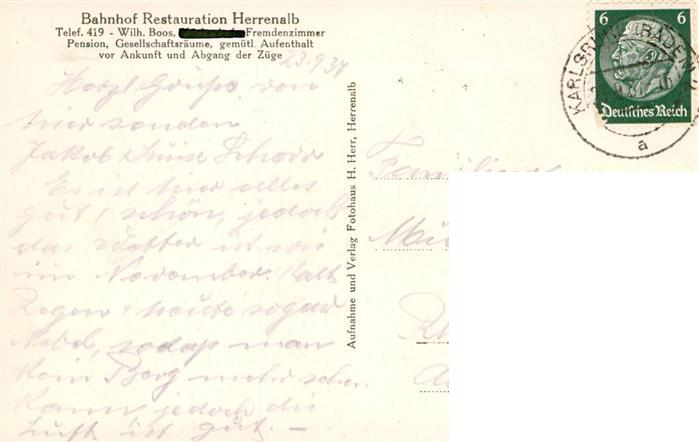 Bahnhof Restauration Herrenalb
Telef. 419 - Wilh. Boos, Fremdenzimmer
Pension, Gesellschaftsräume, gemütl. Aufenthalt
vor Ankunft und Abgang der Züge
23.9.37
Herzl. Grüße von
hier senden
Jakob & Luise Schorr
Es ist hier alles
gut & schön, jedoch
das Wetter ist wie
im November. Kalt
Regen & heute sogar
Nebel, sodaß man
kein Berg mehr sehen
kann, jedoch die
Luft ist gut. –
Aufnahme und Verlag Fotohaus H. Herr, Herrenalb
Familie
6 6
Deutsches Reich
KARLSRUHE (BADEN)
a